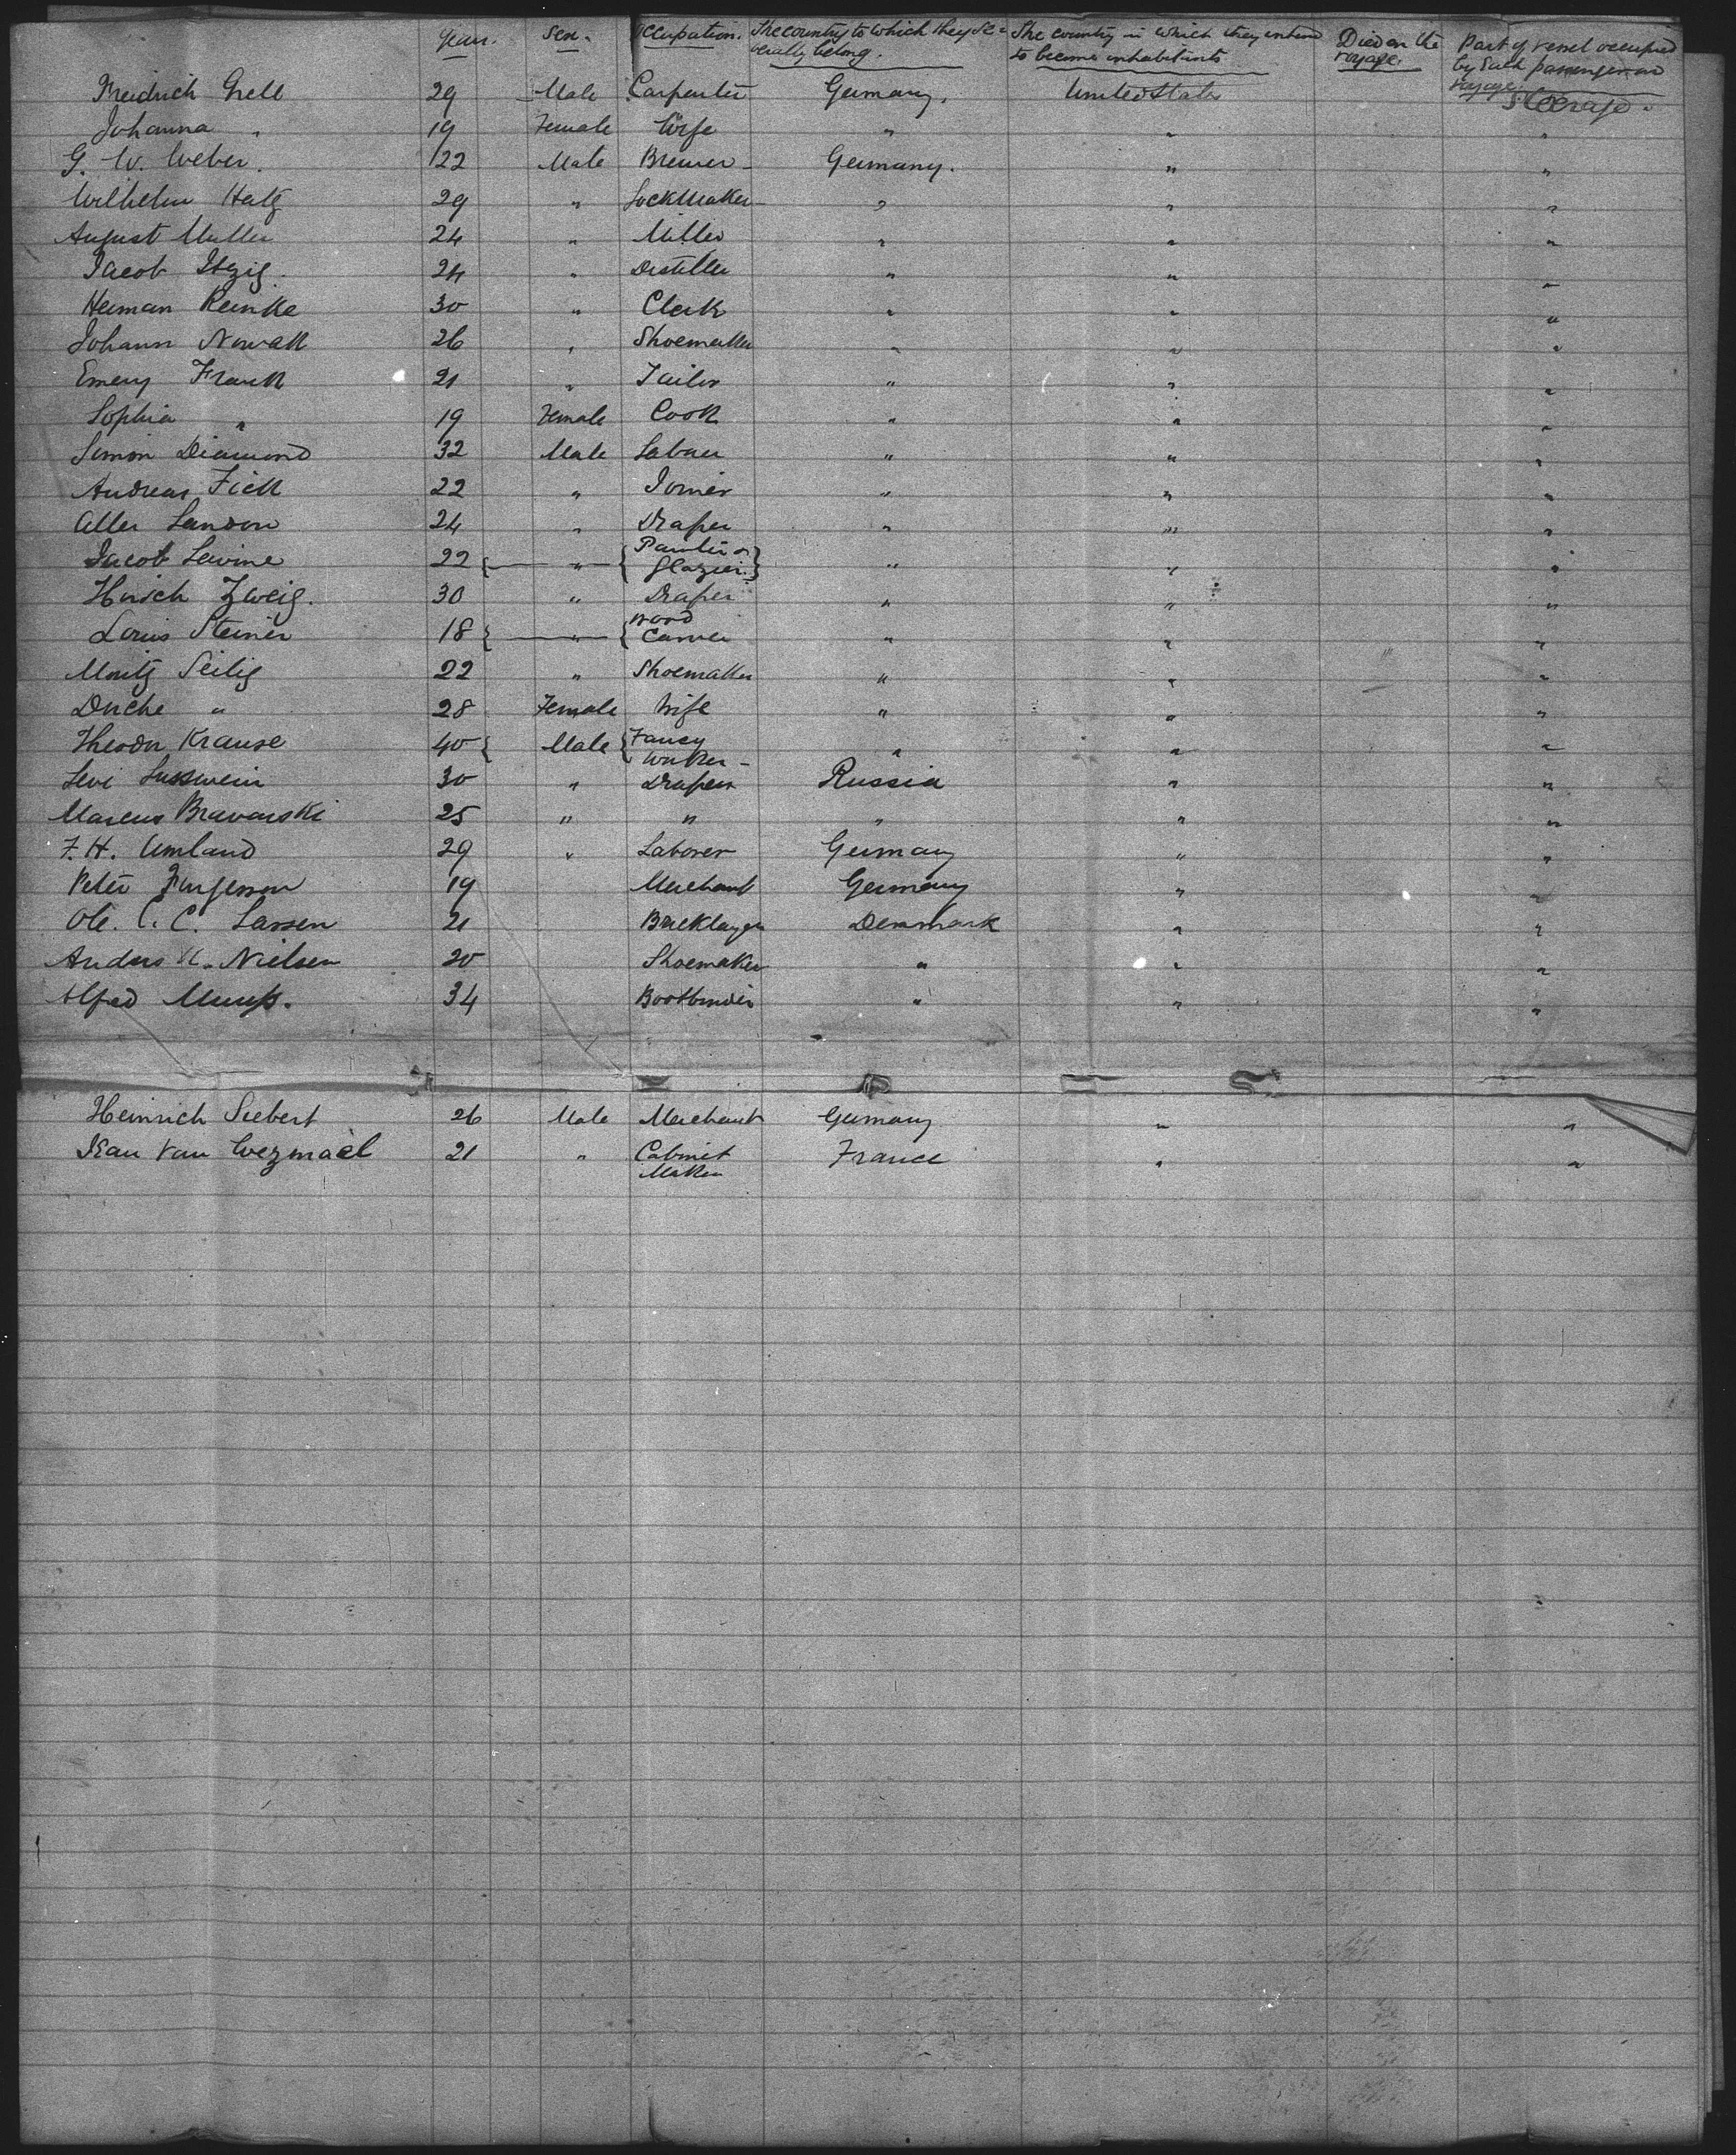 Years. Sex. Occupation. The country to which they se= The country in which they intend Died on the Part of vessel occupied
verally belong. to become inhabitants voyage. by each passenger on
voyage.
Freidrich Grell 29 Male Carpenter Germany. United States Steerage.
Johanna " 19 Female Wife " " "
G. W. Weber. 22 Male Brewer Germany. " "
Wilhelm Hatz 29 " Lockmaker " " "
August Muller 24 " Miller " " "
Jacob Itzig. 24 " Distiller " " "
Herman Reinke 30 " Clerk " " "
Johann Nowak 26 " Shoemaker " " "
Emery Frank 21 " Tailor " " "
Sophia " 19 Female Cook " " "
Simon Diamond 32 Male Laborer " " "
Andreas Fick 22 " Joiner " " "
Aller Landon 24 " Draper " " "
Jacob Levine 22 { " { Painter &
Glazier } " " "
Hirsch Zweig. 30 " Draper " " "
Louis Steiner 18 { " { Wood
Carver " " "
Moritz Seilig 22 " Shoemaker " " "
" 28 Female Wife " " "
Theodor Krause 40 { Male { Fancy
Worker - " " "
Levi Susswein 30 " Draper Russia " "
Marcus 25 " " " " "
F. H. Umland 29 " Laborer Germany " "
Peter 19 Merchant Germany " "
Ole. C. C. Larsen 21 Bricklayer Denmark " "
Anders K. Nielsen 20 Shoemaker " " "
Alfred 34 Bookbinder " " "
Heinrich Siebert 26 Male Merchant Germany " "
Van 21 " Cabinet France " "
Maker